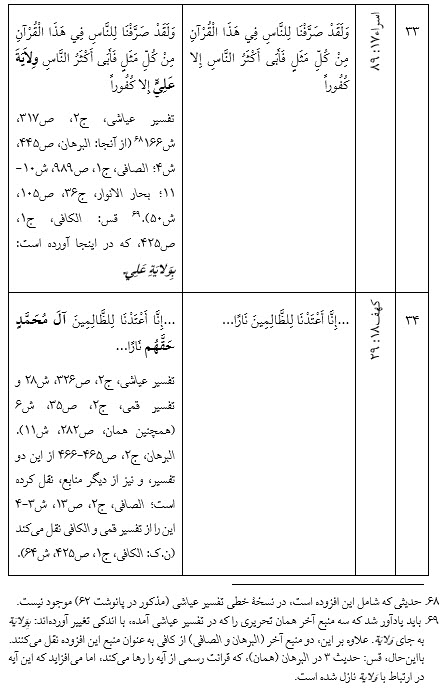 ۳۳
اسراء ۱۷: ۸۹
وَلَقَدْ صَرَّفْنَا لِلنَّاسِ فِي هَذَا الْقُرْآنِ
مِنْ كُلِّ مَثَلٍ فَأَبَى أَكْثَرُ النَّاسِ إِلا
كُفُوراً
وَلَقَدْ صَرَّفْنَا لِلنَّاسِ فِي هَذَا الْقُرْآنِ
مِنْ كُلِّ مَثَلٍ فَأَبَى أَكْثَرُ النَّاسِ وِلايَةَ
عَلِيٍّ إِلا كُفُوراً
تفسیر عیاشی، ج۲، ص۳۱۷،
ش۱۶۶۶۸ (از آنجا: البرهان، ص۴۴۵،
ش۴؛ الصافی، ج۱، ص۹۸۹، ش۱۰–
۱۱؛ بحار الانوار، ج۳۶، ص۱۰۵،
ش۵۰).۶۹ قس: الکافی، ج۱،
ص۴۲۵، که در اینجا آورده است:
بِوَلایَةِ عَلِي.
۳۴
کهف ۱۸: ۲۹
...إِنَّا أَعْتَدْنَا لِلظَّالِمِينَ نَارًا...
...إِنَّا أَعْتَدْنَا لِلظَّالِمِينَ آلَ مُحَمَّدٍ
حَقَّهُم نَارًا...
تفسیر عیاشی، ج۲، ص۳۲۶، ش۲۸ و
تفسیر قمی، ج۲، ص۳۵، ش۶
(همچنین همان، ص۲۸۲، ش۱۱).
البرهان، ج۲، ص۴۶۵-۴۶۶ از این دو
تفسیر، و نیز از دیگر منابع، نقل کرده
است؛ الصافی، ج۲، ص۱۳، ش۳-۴
این را از تفسیر قمی و الکافی نقل می‌کند
(ن.ک: الکافی، ج۱، ص۴۲۵، ش۶۴).
۶۸. حدیثی که شامل این افزوده است، در نسخهٔ خطی تفسیر عیاشی (مذکور در پانوشت ۶۲) موجود نیست.
۶۹. باید یادآور شد که سه منبع آخر همان تحریری را که در تفسیر عیاشی آمده، با اندکی تغییر آورده‌اند: بِوَلایَة
به جای وَلایَة. علاوه بر این، دو منبع آخر (البرهان و الصافی) از کافی به عنوان منبع این افزوده نقل می‌کنند.
بااین‌حال، قس: حدیث ۳ در البرهان (همان)، که قرائت رسمی از آیه را رها می‌کند، اما می‌افزاید که این آیه
در ارتباط با وَلایَة نازل شده است.